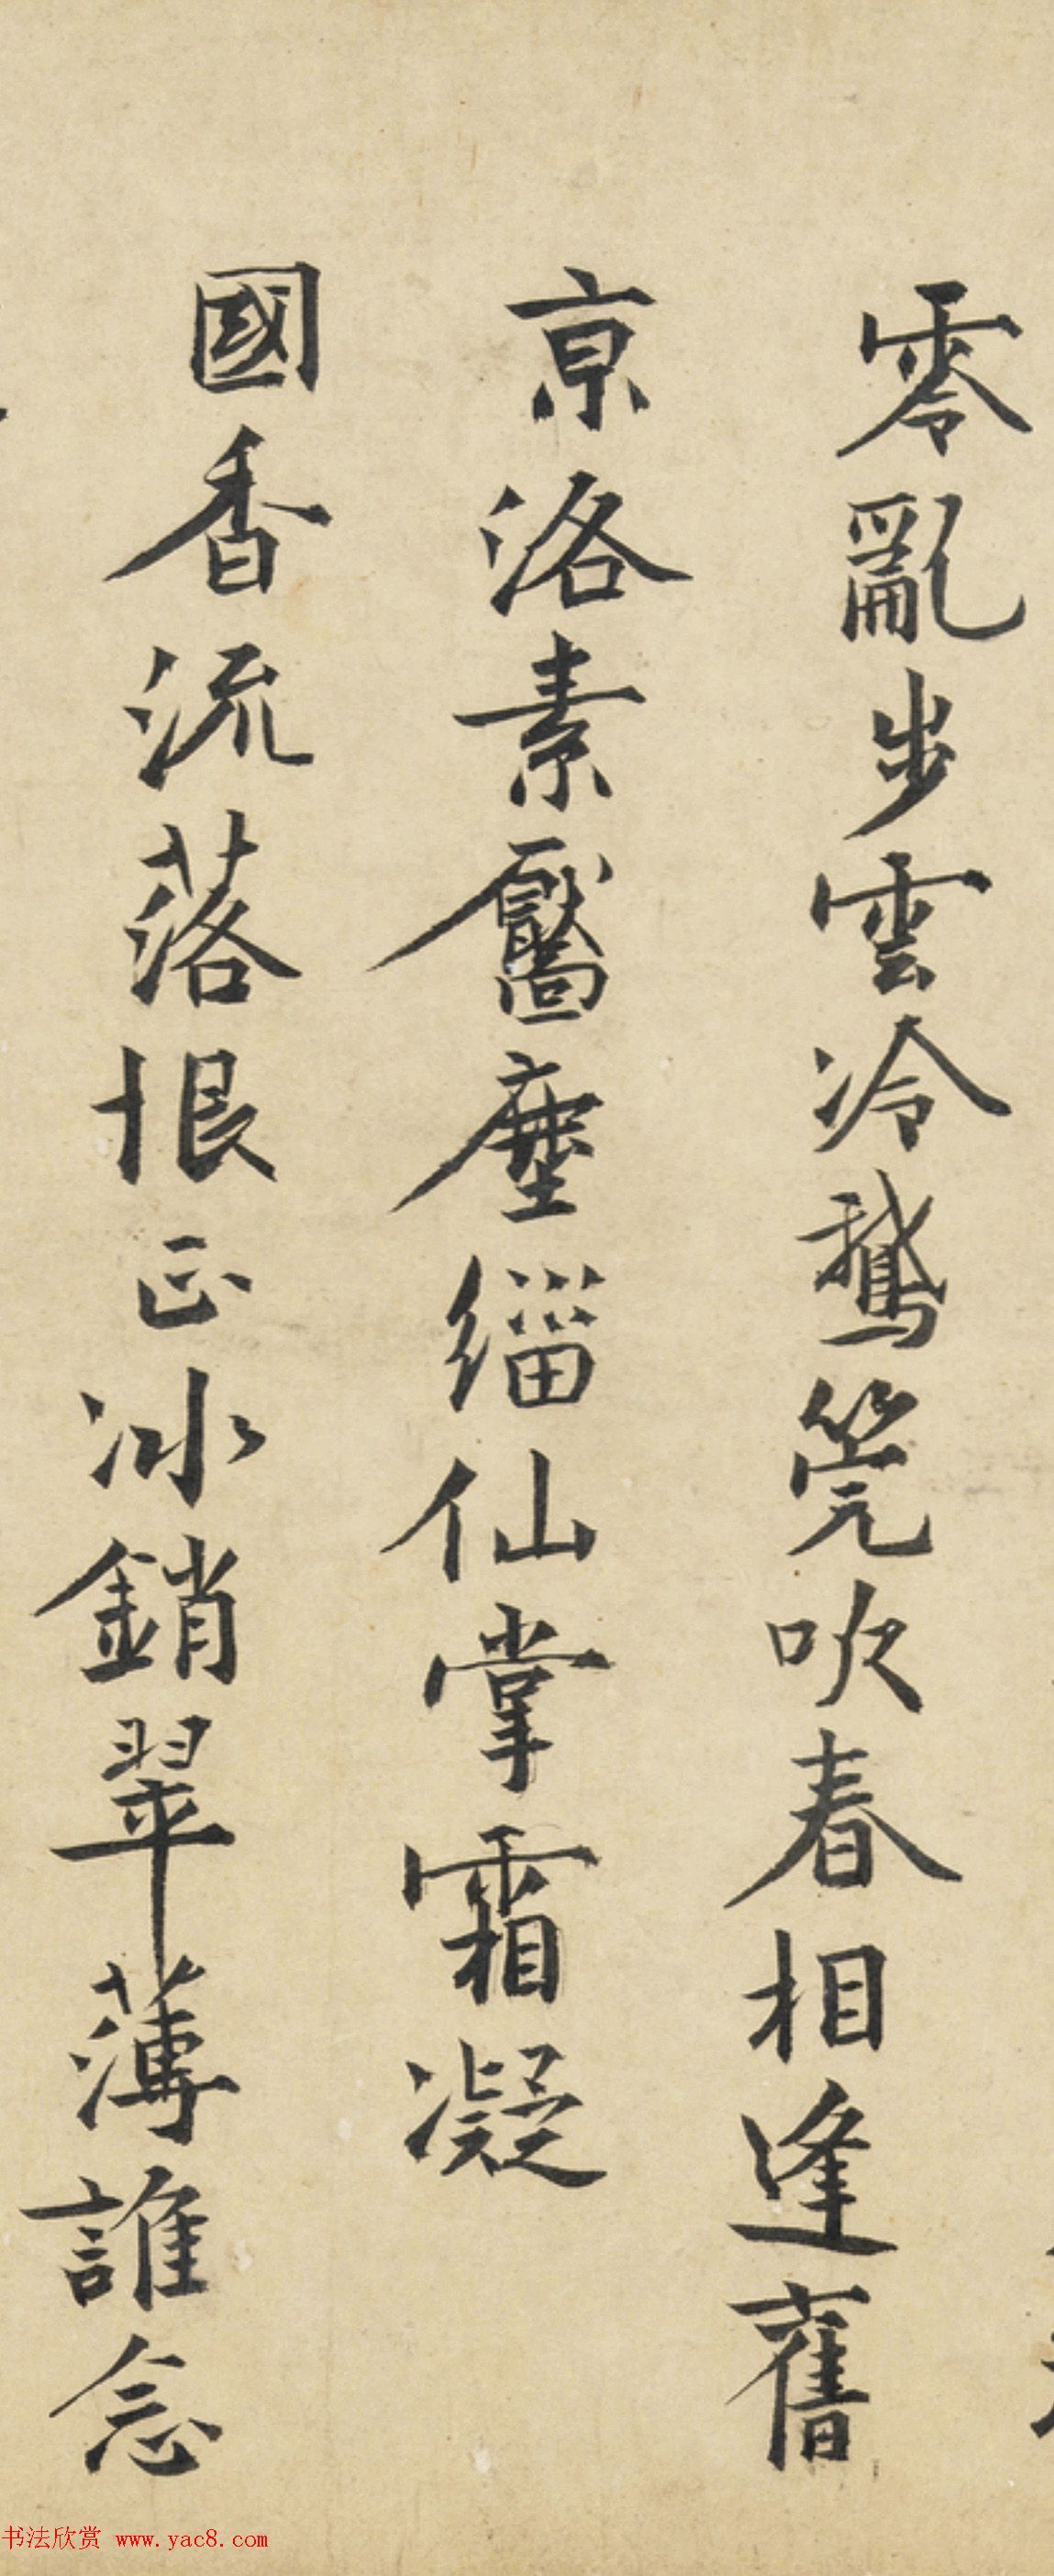 零亂步雲冷鵞筦吹春相逢舊
京洛素靨塵緇仙掌霜凝
國香流落恨正冰銷翠薄誰念
书法欣赏 www.yac8.com